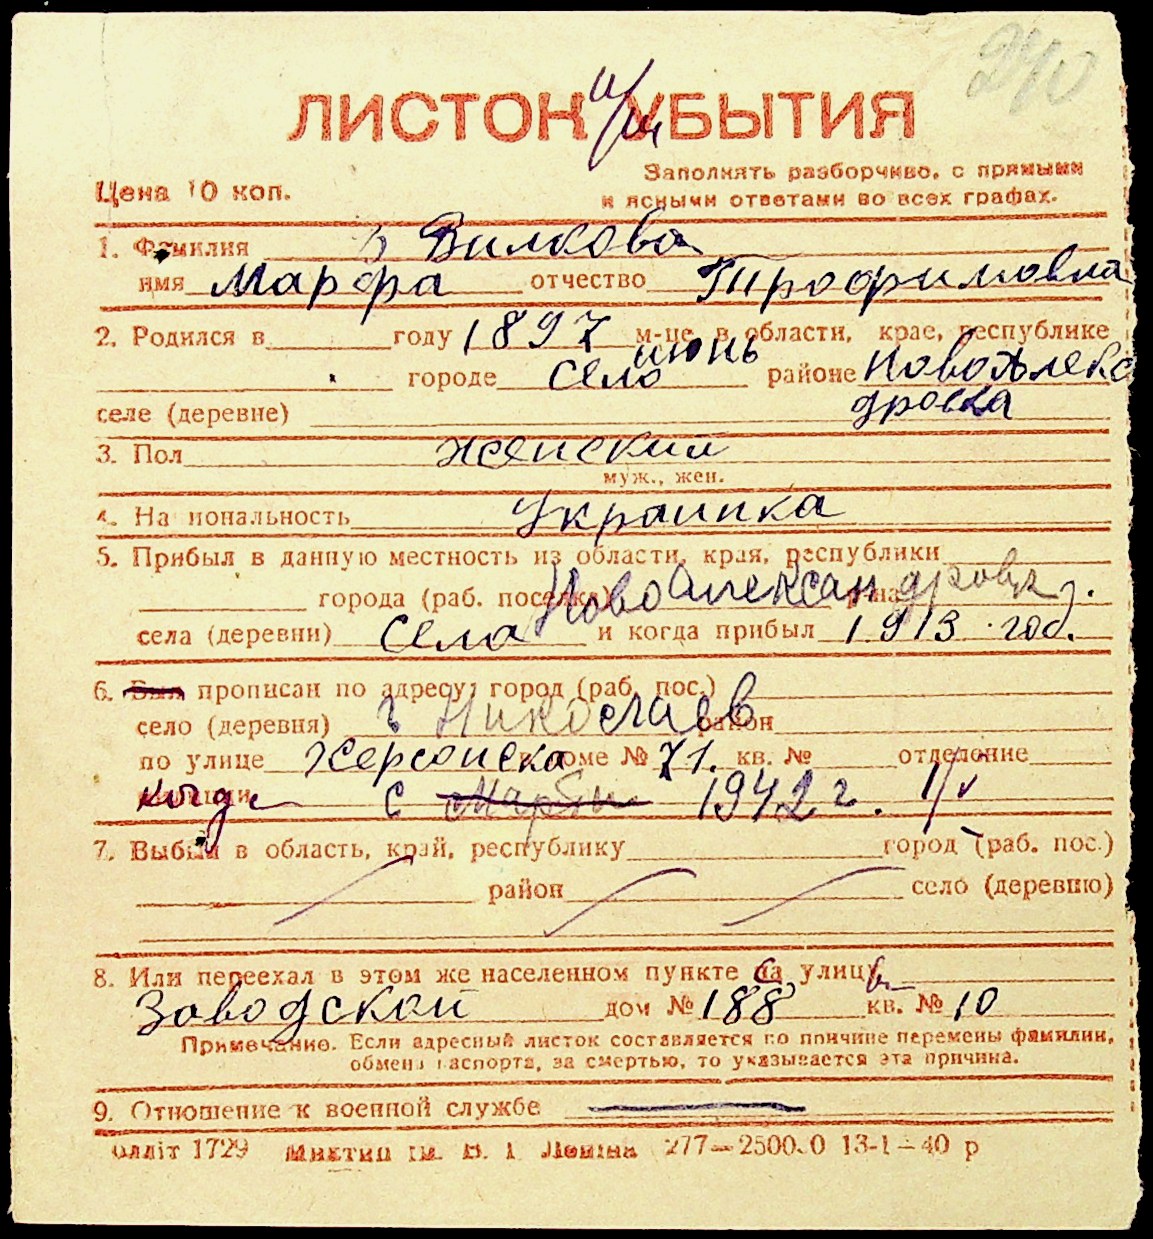 240
ЛИСТОК УБЫТИЯ
Цена 10 коп.
Заполнять разборчиво, с прямыми
и ясными ответами во всех графах.
1. Фамилия Вилкова
имя Марфа отчество Трофимовна
2. Родился в году 1897 м-це в области, крае, республике
июнь
городе село районе НовоАлекс
селе (деревне) дровка
3. Пол женский
муж., жен.
4. Национальность Украинка
5. Прибыл в данную местность из области, края, республики
города (раб. поселка) Новоалександровка р-на
села (деревни) села и когда прибыл 1913 год.
6. Был прописан по адресу: город (раб. пос.)
село (деревня) г Николаев район
по улице Херсонска доме № 71. кв. № отделение
когда с 1942 г.
7. Выбыл в область, край, республику город (раб. пос.)
район село (деревню)
8. Или переехал в этом же населенном пункте на улицу
Заводской дом № 188 кв. № 10
Примечание. Если адресный листок составляется по причине перемены фамилии,
обмена паспорта, за смертью, то указывается эта причина.
9. Отношение к военной службе
1729 ім. В. І. Леніна 277—25000 13-1—40 р